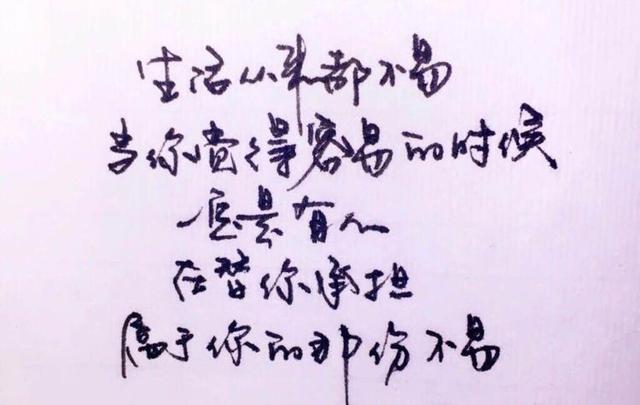 生活从来都不易
当你觉得容易的时候
一定是有人
在替你承担
属于你的那份不易